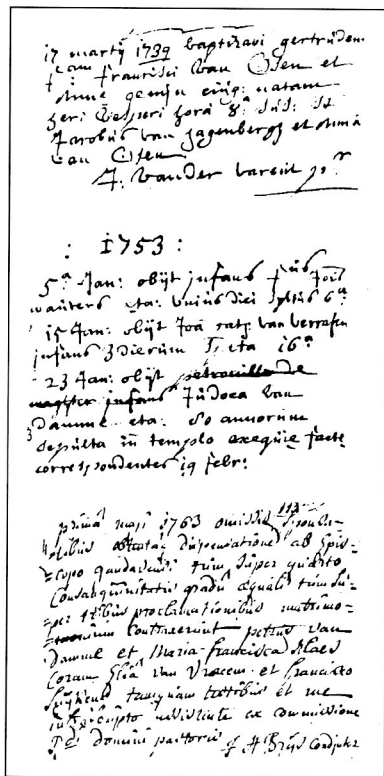 17 martij 1739 baptizavi gertruden
f:eam francisci van Osen et
Anne ejus: natam
heri vesperi hora 8a sus: st
Jacobus van hagenbergh et Anna
van Osen
J. vander varent pr
: 1753 :
5a Jan: obijt infans filius Jois
wauters eta: unius diei sepultus 6a
15 Jan: obijt Joa cath: van
infans 3 dierum eta 16a
23 Jan: obijt petronilla de
infans Judoca van
damme eta: 80 annorum
sepulta in templo exequie facte
correspondentes 19 febr:
prima maji 1763 omissis sponsa-
libus obtenta dispensatione ab Epis-
copo gandavensi tum super quarto
Consanguinitatis gradu equali tum su-
per tribus proclamationibus matrimo-
nium contraxerunt petrus van
Damme et Maria francisca Claes
Coram van Vracem et francisco
tamquam testibus et me
infrascripto assistente ex commissione
domini pastoris J H Brijs Coadjutor